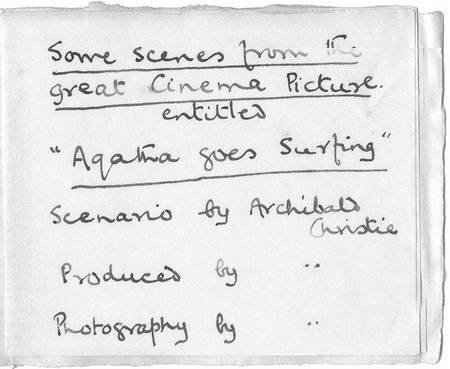 Some scenes from the
great Cinema Picture.
entitled
"Agatha goes Surfing"
Scenario by Archibald
Christie
Produced by "
Photography by "